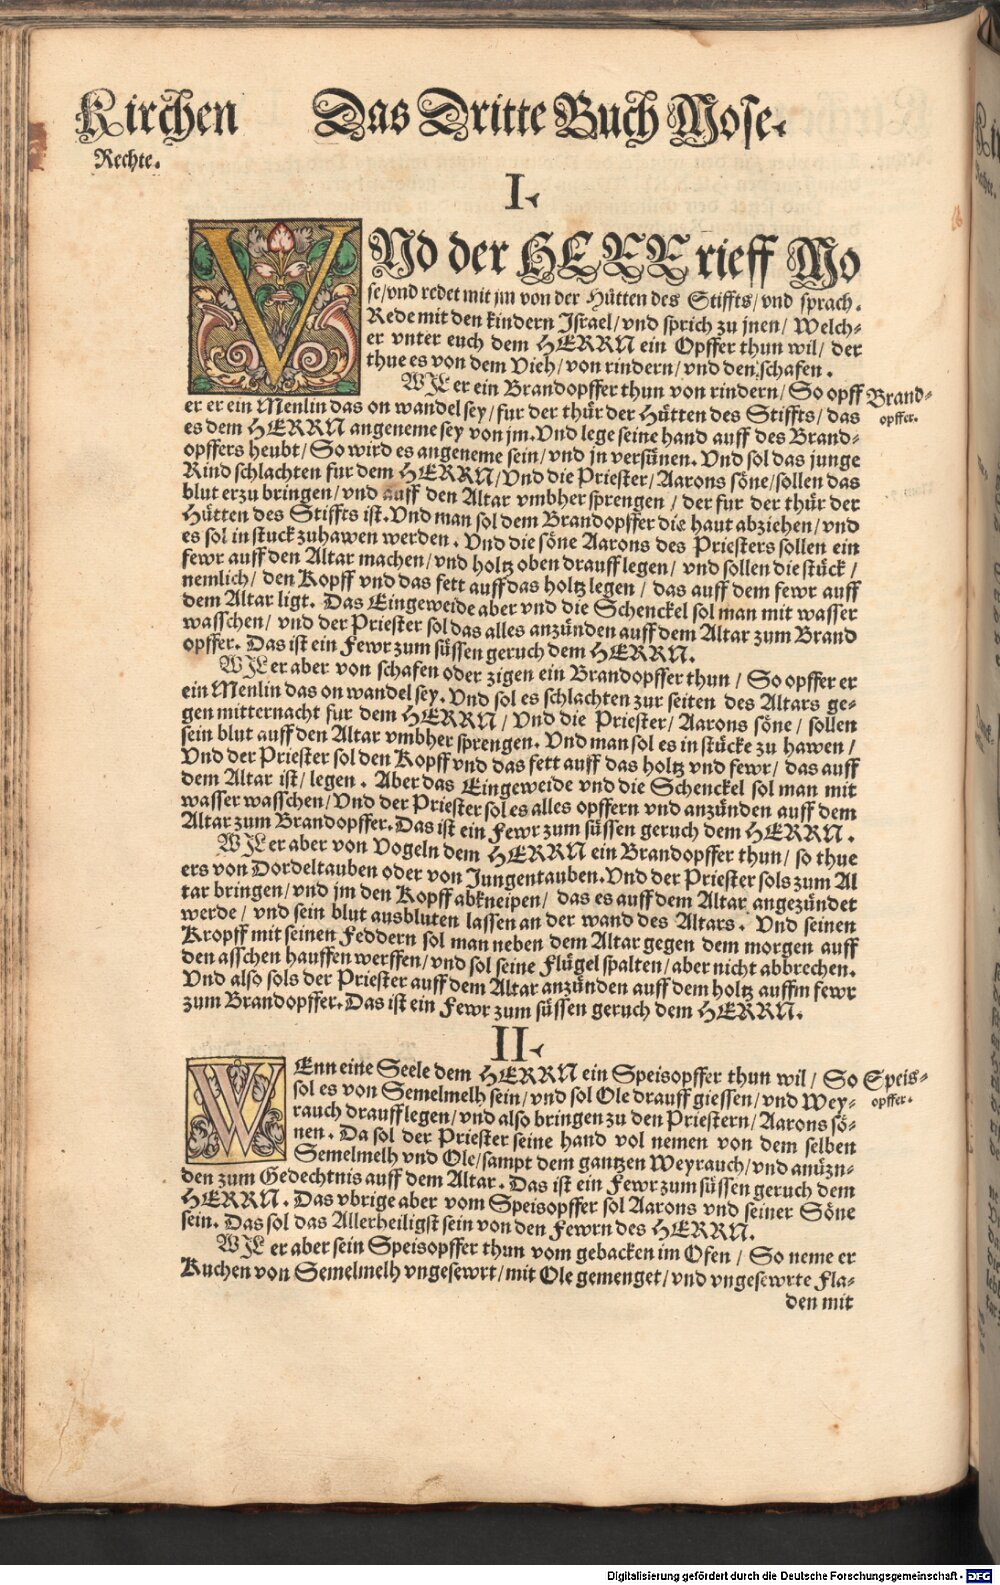 Kirchen Das Dritte Buch Mose.
Rechte.
I.
VNd der HERR rieff Mo
se/vnd redet mit jm von der Hütten des Stiffts/vnd sprach.
Rede mit den kindern Israel/vnd sprich zu jnen/ Welch-
er vnter euch dem HERRN ein Opffer thun wil/ der
thue es von dem Vieh/von rindern/vnd den schafen.
WJL er ein Brandopffer thun von rindern/ So opff
Brand-
opffer.
er er ein Menlin das on wandel sey/ fur der thür der Hütten des Stiffts/ das
es dem HERRN angeneme sey von jm. Vnd lege seine hand auff des Brand-
opffers heubt/ So wird es angeneme sein/ vnd jn versünen. Vnd sol das junge
Rind schlachten fur dem HERRN/ Vnd die Priester/ Aarons söne/sollen das
blut erzu bringen/ vnd auff den Altar vmbher sprengen / der fur der thür der
Hütten des Stiffts ist. Vnd man sol dem Brandopffer die haut abziehen/ vnd
es sol in stuck zuhawen werden. Vnd die söne Aarons des Priesters sollen ein
fewr auff den Altar machen/ vnd holtz oben drauff legen/ vnd sollen die stück/
nemlich/ den Kopff vnd das fett auff das holtz legen / das auff dem fewr auff
dem Altar ligt. Das Eingeweide aber vnd die Schenckel sol man mit wasser
wasschen/ vnd der Priester sol das alles anzünden auff dem Altar zum Brand
opffer. Das ist ein Fewr zum süssen geruch dem HERRN.
WJL er aber von schafen oder zigen ein Brandopffer thun / So opffer er
ein Menlin das on wandel sey. Vnd sol es schlachten zur seiten des Altars ge-
gen mitternacht fur dem HERRN/ Vnd die Priester/ Aarons söne/ sollen
sein blut auff den Altar vmbher sprengen. Vnd man sol es in stücke zu hawen/
Vnd der Priester sol den Kopff vnd das fett auff das holtz vnd fewr/ das auff
dem Altar ist/ legen. Aber das Eingeweide vnd die Schenckel sol man mit
wasser wasschen/ Vnd der Priester sol es alles opffern vnd anzünden auff dem
Altar zum Brandopffer. Das ist ein Fewr zum süssen geruch dem HERRN.
WJL er aber von Vogeln dem HERRN ein Brandopffer thun/ so thue
ers von Dordeltauben oder von Jungentauben. Vnd der Priester sols zum Al
tar bringen/ vnd jm den Kopff abkneipen/ das es auff dem Altar angezündet
werde/ vnd sein blut ausbluten lassen an der wand des Altars. Vnd seinen
Kropff mit seinen Feddern sol man neben dem Altar gegen dem morgen auff
den asschen hauffen werffen/ vnd sol seine Flügel spalten/ aber nicht abbrechen.
Vnd also sols der Priester auff dem Altar anzünden auff dem holtz auffm fewr
zum Brandopffer. Das ist ein Fewr zum süssen geruch dem HERRN.
II.
WEnn eine Seele dem HERRN ein Speisopffer thun wil/ So
Speis-
opffer.
sol es von Semelmelh sein/ vnd sol Ole drauff giessen/ vnd Wey-
rauch drauff legen/ vnd also bringen zu den Priestern/ Aarons sö-
nen. Da sol der Priester seine hand vol nemen von dem selben
Semelmelh vnd Ole/sampt dem gantzen Weyrauch/ vnd anüzn-
den zum Gedechtnis auff dem Altar. Das ist ein Fewr zum süssen geruch dem
HERRN. Das vbrige aber vom Speisopffer sol Aarons vnd seiner Söne
sein. Das sol das Allerheiligst sein von den Fewrn des HERRN.
WJL er aber sein Speisopffer thun vom gebacken im Ofen/ So neme er
Kuchen von Semelmelh vngesewrt/ mit Ole gemenget/ vnd vngesewrte Fla-
den mit
Digitalisierung gefördert durch die Deutsche Forschungsgemeinschaft - DFG